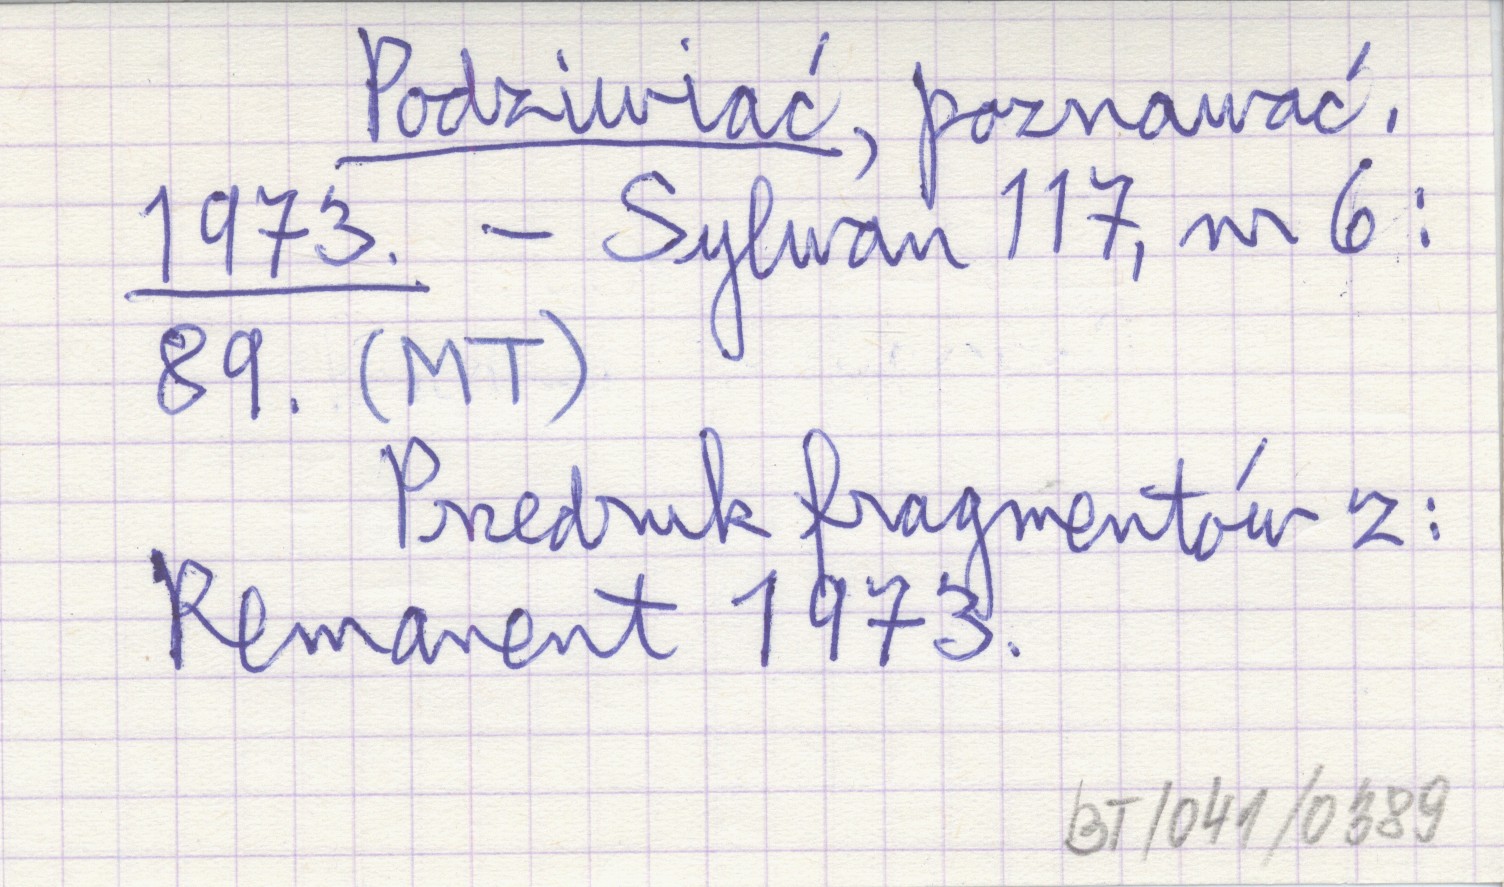 Podziwiać, poznawać.
1973. – Sylwan 117, nr 6:
89. (MT)
Przedruk fragmentów z:
Remanent 1973.
BT/041/0389